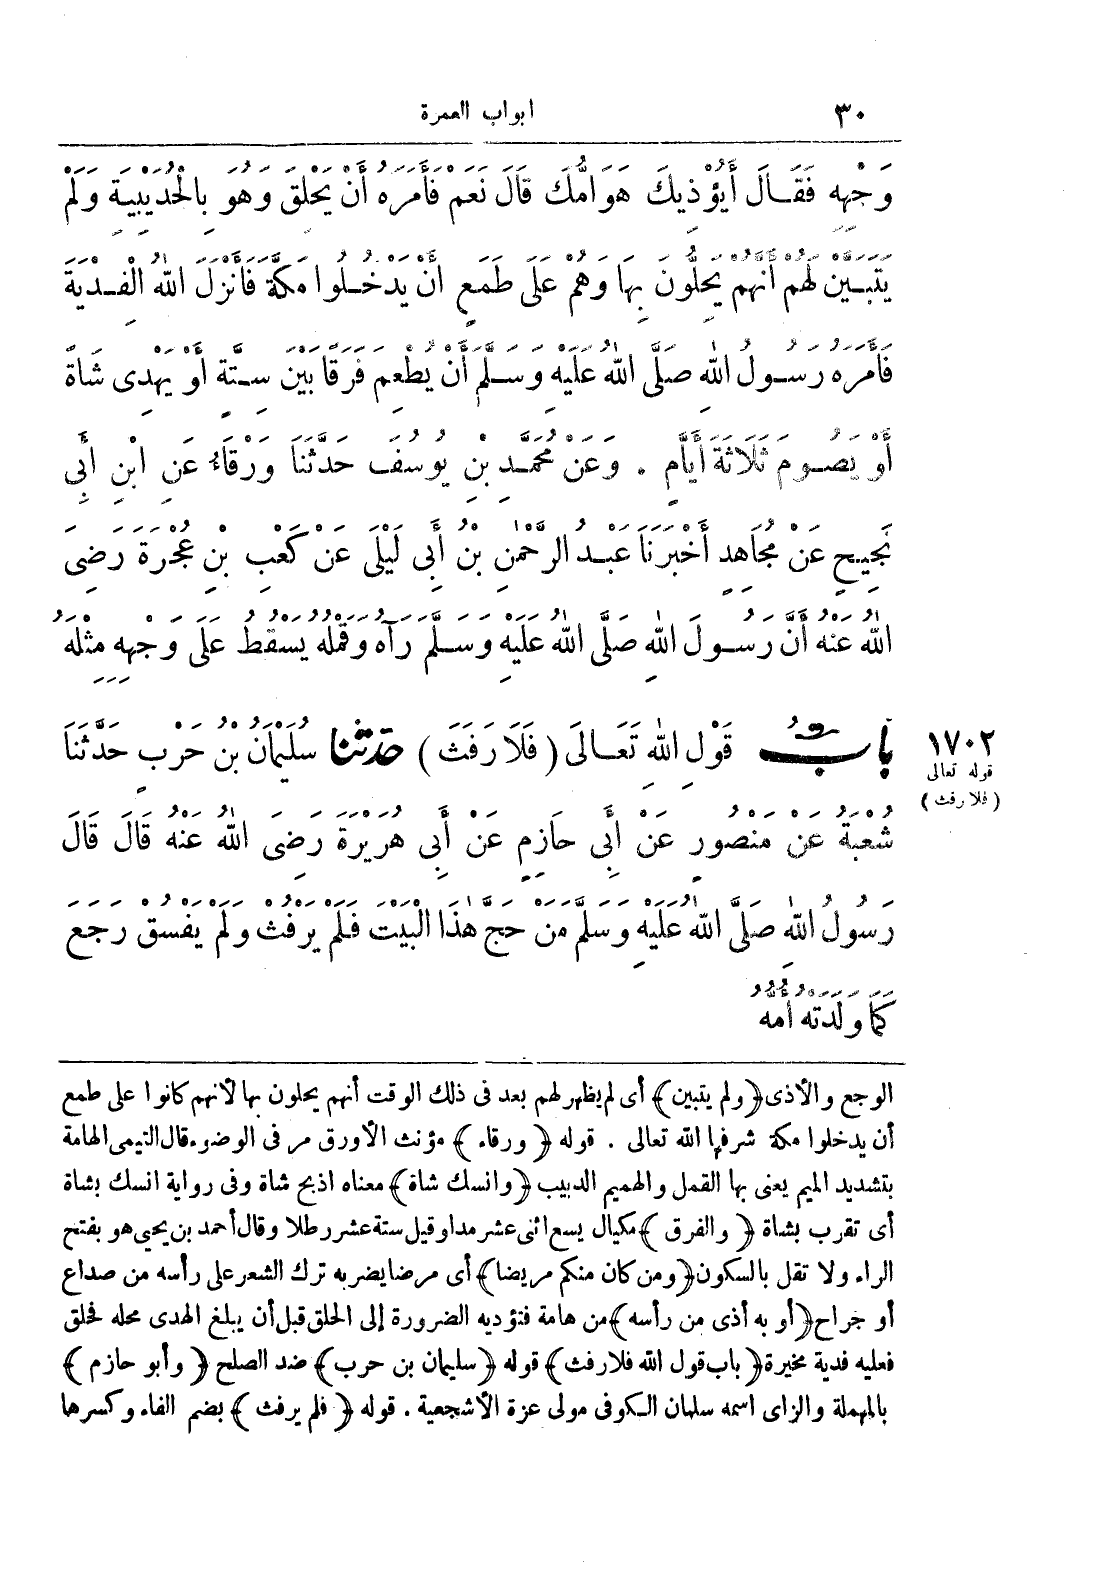 ٣٠
ابواب العمرة
وَجْهِهِ فَقَالَ أَيُؤْذِيكَ هَوَامُّكَ قَالَ نَعَمْ فَأَمَرَهُ أَنْ يَحْلِقَ وَهُوَ بِالْحُدَيْبِيَةِ وَلَمْ
يَتَبَيَّنْ لَهُمْ أَنَّهُمْ يَحِلُّونَ بِهَا وَهُمْ عَلَى طَمَعٍ أَنْ يَدْخُلُوا مَكَّةَ فَأَنْزَلَ اللهُ الْفِدْيَةَ
فَأَمَرَهُ رَسُولُ اللهِ صَلَّى اللهُ عَلَيْهِ وَسَلَّمَ أَنْ يُطْعِمَ فَرَقًا بَيْنَ سِتَّةٍ أَوْ يُهْدِىَ شَاةً
أَوْ يَصُومَ ثَلَاثَةَ أَيَّامٍ . وَعَنْ مُحَمَّدِ بْنِ يُوسُفَ حَدَّثَنَا وَرْقَاءُ عَنِ ابْنِ أَبِى
نَجِيحٍ عَنْ مُجَاهِدٍ أَخْبَرَنَا عَبْدُ الرَّحْمٰنِ بْنُ أَبِى لَيْلَى عَنْ كَعْبِ بْنِ عُجْرَةَ رَضِىَ
اللهُ عَنْهُ أَنَّ رَسُولَ اللهِ صَلَّى اللهُ عَلَيْهِ وَسَلَّمَ رَآهُ وَقَمْلُهُ يَسْقُطُ عَلَى وَجْهِهِ مِثْلَهُ
١٧٠٢
قوله تعالى
( فلا رفث )
بَابُ قَوْلِ اللهِ تَعَالَى ( فَلَا رَفَثَ ) حَدَّثَنَا سُلَيْمَانُ بْنُ حَرْبٍ حَدَّثَنَا
شُعْبَةُ عَنْ مَنْصُورٍ عَنْ أَبِى حَازِمٍ عَنْ أَبِى هُرَيْرَةَ رَضِىَ اللهُ عَنْهُ قَالَ قَالَ
رَسُولُ اللهِ صَلَّى اللهُ عَلَيْهِ وَسَلَّمَ مَنْ حَجَّ هٰذَا الْبَيْتَ فَلَمْ يَرْفُثْ وَلَمْ يَفْسُقْ رَجَعَ
كَمَا وَلَدَتْهُ أُمُّهُ
الوجع والأذى ﴿ولم يتبين﴾ أى لم يظهر لهم بعد فى ذلك الوقت أنهم يحلون بها لأنهم كانوا على طمع
أن يدخلوا مكة شرفها الله تعالى . قوله ﴿ورقاء﴾ مؤنث الأورق مر فى الوضوء قال التيمى الهامة
بتشديد الميم يعنى بها القمل والهميم الدبيب ﴿وانسك شاة﴾ معناه اذبح شاة وفى رواية انسك بشاة
أى تقرب بشاة ﴿والفرق﴾ مكيال يسع اثنى عشر مدا وقيل ستة عشر رطلا وقال أحمد بن يحيى هو بفتح
الراء ولا تقل بالسكون ﴿ومن كان منكم مريضا﴾ أى مرضا يضر به ترك الشعر على رأسه من صداع
أو جراح ﴿أو به أذى من رأسه﴾ من هامة فتؤديه الضرورة إلى الحلق قبل أن يبلغ الهدى محله فحلق
فعليه فدية مخيرة ﴿باب قول الله فلا رفث﴾ قوله ﴿سليمان بن حرب﴾ ضد الصلح ﴿وأبو حازم﴾
بالمهملة والزاى اسمه سلمان الكوفى مولى عزة الأشجعية . قوله ﴿فلم يرفث﴾ بضم الفاء وكسرها